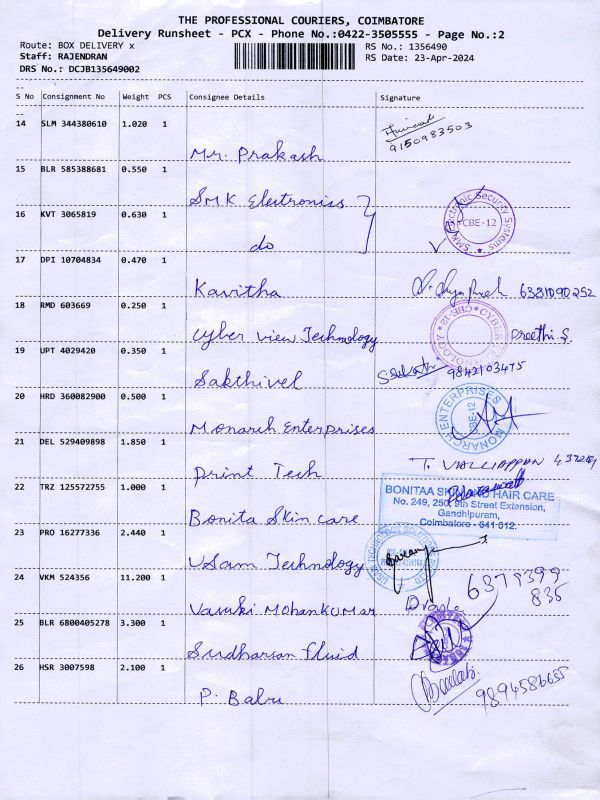 THE PROFESSIONAL COURIERS, COIMBATORE
Delivery Runsheet - PCX - Phone No.:0422-3505555 - Page No.:2
Route: BOX DELIVERY x
RS No.: 1356490
Staff: RAJENDRAN
RS Date: 23-Apr-2024
DRS No.: DCJB135649002
S No Consignment No Weight PCS Consignee Details Signature
14 SLM 344380610 1.020 1
9150983503
Mr. Prakash
15 BLR 585388681 0.550 1
SMK Electronics
16 KVT 3065819 0.630 1
SMK Electronic Security Systems
CBE-12
do
17 DPI 10704834 0.470 1
Kavitha
6381090252
18 RMD 603669 0.250 1
Cyber View Technology
Preethi S.
19 UPT 4029420 0.350 1
Sakthivel
9842103475
20 HRD 360082900 0.500 1
MONARCH ENTERPRISES
CBE-12
Monarch Enterprises
21 DEL 529409898 1.850 1
Print Tech
T. VALLIAPPAN
22 TRZ 125572755 1.000 1
BONITAA SKIN AND HAIR CARE
No. 249, 250, 9th Street Extension,
Gandhipuram,
Coimbatore - 641 012.
Bonita Skin care
23 PRO 16277336 2.440 1
USam Technology
24 VKM 524356 11.200 1
6379399
835
Vasuki MOHANKUMAR
25 BLR 6800405278 3.300 1
Sudharsan fluid
26 HSR 3007598 2.100 1
9894586655
P. Babu